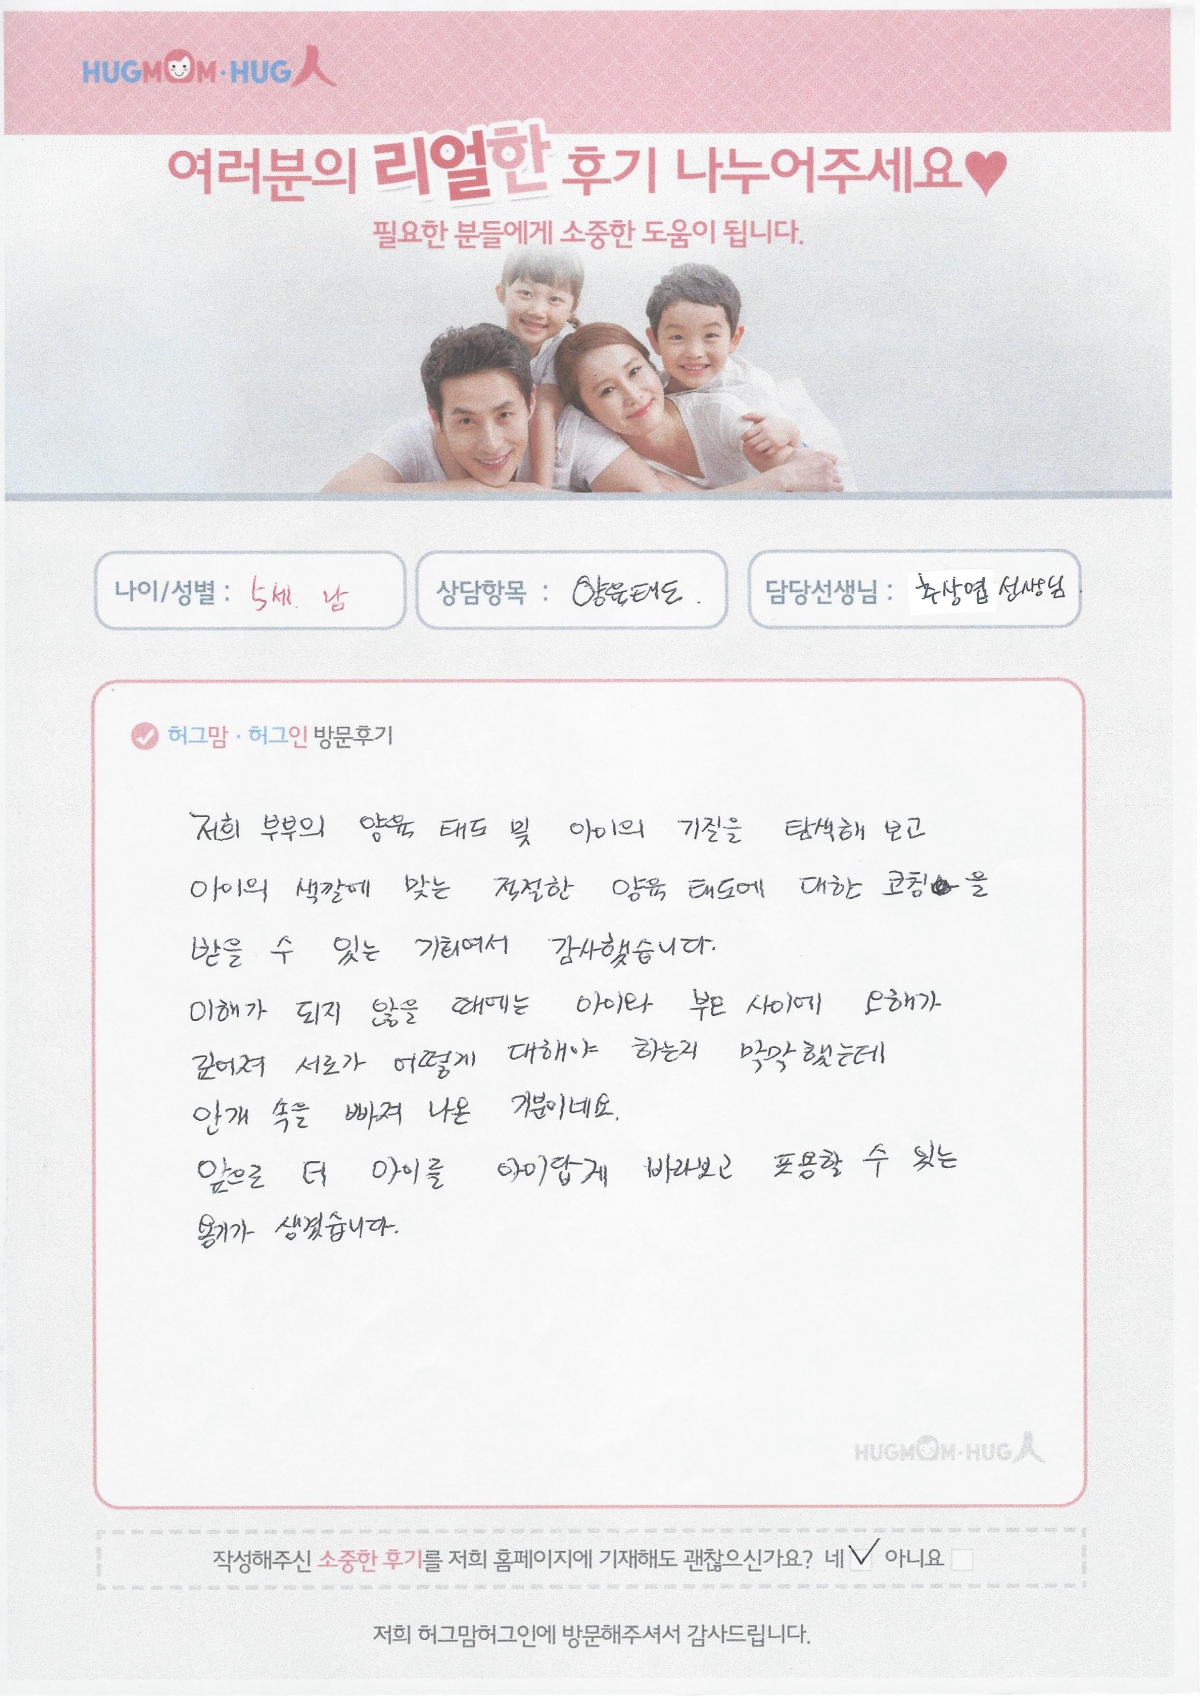 HUGMOM·HUG人
여러분의 리얼한 후기 나누어주세요♥
필요한 분들에게 소중한 도움이 됩니다.
나이/성별 : 5세. 남
상담항목 : 양육태도.
담당선생님 : 추상엽 선생님.
허그맘·허그인 방문후기
저희 부부의 양육 태도 및 아이의 기질을 탐색해 보고
아이의 색깔에 맞는 적절한 양육 태도에 대한 코칭을
받을 수 있는 기회여서 감사했습니다.
이해가 되지 않을 때에는 아이와 부모 사이에 오해가
깊어져 서로가 어떻게 대해야 하는지 막막했는데
안개 속을 빠져 나온 기분이네요.
앞으로 더 아이를 아이답게 바라보고 포용할 수 있는
용기가 생겼습니다.
HUGMOM·HUG人
작성해주신 소중한 후기를 저희 홈페이지에 기재해도 괜찮으신가요? 네 ☑ 아니요 ☐
저희 허그맘허그인에 방문해주셔서 감사드립니다.